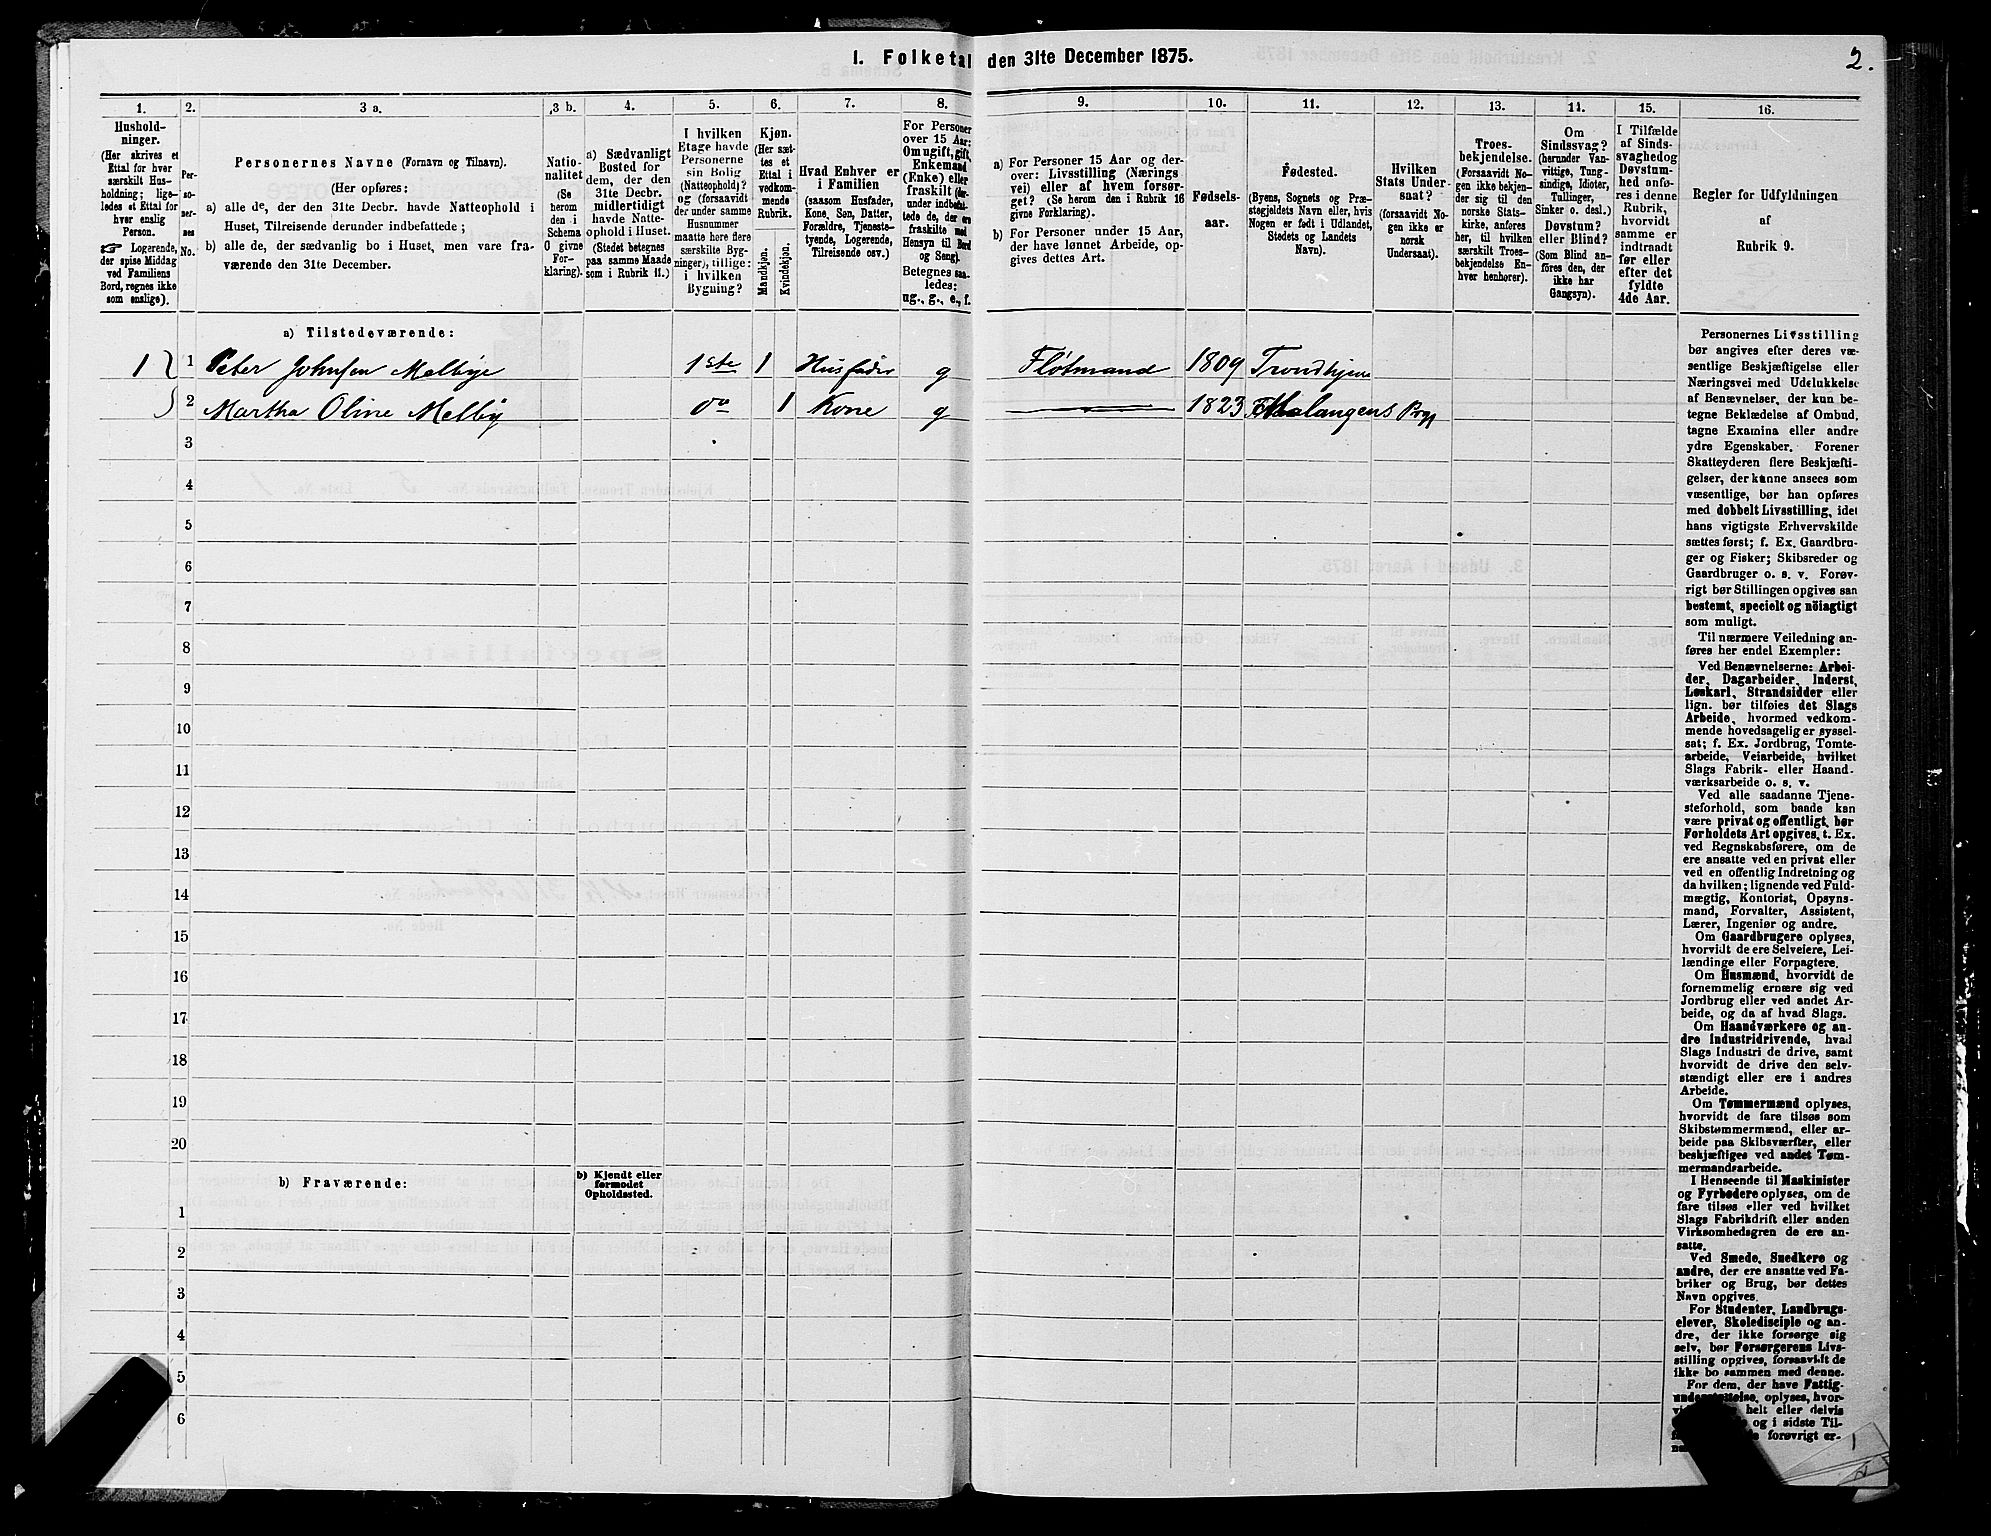 1. Folketal den 31te December 1875.
2.
1.
Hushold-
ninger.
(Her skrives et
Ettal for hver
særskilt Hus-
holdning; lige-
ledes et Ettal for
hver enslig
Person.
Logerende,
der spise Middag
ved Familiens
Bord, regnes ikke
som enslige).
2.
Per-
so-
ner-
nes
No.
3 a.
Personernes Navne (Fornavn og Tilnavn).
(Her opføres:
a) alle de, der den 31te Decbr. havde Natteophold i
Huset, Tilreisende derunder indbefattede;
b) alle de, der sædvanlig bo i Huset, men vare fra-
værende den 31te December.
3 b.
Natio-
nalitet
(Se
herom
den i
Schema
O givne
For-
klaring).
4.
a) Sædvanligt
Bosted for
dem, der den
31te Decbr.
midlertidigt
havde Natte-
ophold i Huset.
(Stedet betegnes
paa samme Maade
som i Rubrik 11.)
5.
I hvilken
Etage havde
Personerne
sin Bolig
(Natteophold)?
og (forsaavidt
der under samme
Husnummer
maatte høre flere
særskilte Byg-
ninger), tillige:
i hvilken
Bygning?
6.
Kjøn.
(Her sæt-
tes et
Ettal i
vedkom-
mende
Rubrik.
Mandkjøn.
Kvindekjøn.
7.
Hvad Enhver er
i Familien
(saasom Husfader,
Kone, Søn, Datter,
Forældre, Tjeneste-
tyende, Logerende,
Tilreisende osv.)
8.
For Personer
over 15 Aar:
Om ugift, gift,
Enkemand
(Enke) eller
fraskilt (der-
under indbefat-
tede de, der ere
fraskilte med
Hensyn til Bord
og Seng).
Betegnes saa-
ledes:
ug., g., e., f.
9.
a) For Personer 15 Aar og der-
over: Livsstilling (Nærings
vei) eller af hvem forsør-
get? (Se herom den i Rubrik 16
givne Forklaring).
b) For Personer under 15 Aar,
der have lønnet Arbeide, op-
gives dettes Art.
10.
Fødsels-
aar.
11.
Fødested.
(Byens, Sognets og Præ-
stegjeldets Navn eller, hvis
Nogen er født i Udlandet,
Stedets og Landets
Navn).
12.
Hvilken
Stats Under-
saat?
(forsaavidt No-
gen ikke er
norsk
Undersaat).
13.
Troes-
bekjendelse.
(Forsaavidt No-
gen ikke bekjen-
der sig til den
norske Stats-
kirke, anføres
her, til hvilken
særskilt Troes-
bekjendelse En-
hver henhører).
14.
Om
Sindssvag?
(herunder Van-
vittige, Tung-
sindige, Idioter,
Tullinger,
Sinker o. desl.)
Døvstum?
eller Blind?
(Som Blind an-
føres den, der
ikke har
Gangsyn).
15.
I Tilfælde
af Sinds-
svaghedog
Døvstum-
hed anfø-
res i denne
Rubrik,
hvorvidt
samme er
indtraadt
før eller
efter det
fyldte
4de Aar.
16.
Regler for Udfyldningen
af
Rubrik 9.
a) Tilstedeværende:
1 1 Peter Johnsen Melbye 1ste 1 Husfader g Fløtmand 1809 Trondhjem
2 Martha Oline Melby do 1 Kone g 1823 Malangens Prgj
3
4
5
6
7
8
9
10
11
12
13
14
15
16
17
18
19
20
b) Fraværende:
b) Kjendt eller
formodet
Opholdssted.
1
2
3
4
5
6
Personernes Livsstilling
bør angives efter deres væ-
sentlige Beskjæftigelse eller
Næringsvei med Udelukkelse
af Benævnelser, der kun be-
tegne Beklædelse af Ombud,
tagne Examina eller andre
ydre Egenskaber. Forener
Skatteyderen flere Beskjæfti-
gelser, der kunne ansees som
væsentlige, bør han opføres
med dobbelt Livsstilling, idet
hans vigtigste Erhvervskilde
sættes først; f. Ex. Gaardbru-
ger og Fisker; Skibsreder og
Gaardbruger o. s. v. Forøv-
rigt bør Stillingen opgives saa
bestemt, specielt og nöiagtigt
som muligt.
Til nærmere Veiledning an-
føres her endel Exempler:
Ved Benævnelserne: Arbei-
der, Dagarbeider, Inderst,
Løskarl, Strandsidder eller
lign. bør tilføies det Slags
Arbeide, hvormed vedkom-
mende hovedsagelig er syssel-
sat; f. Ex. Jordbrug, Tomte-
arbeide, Veiarbeide, hvilket
Slags Fabrik- eller Haand-
værksarbeide o. s. v.
Ved alle saadanne Tjene-
steforhold, som baade kan
være privat og offentligt, bør
Forholdets Art opgives, t. Ex.
ved Regnskabsførere, om de
ere ansatte ved en privat eller
ved en offentlig Indretning og
da hvilken; lignende ved Fuld-
mægtig, Kontorist, Opsyns-
mand, Forvalter, Assistent,
Lærer, Ingeniør og andre.
Om Gaardbrugere oplyses,
hvorvidt de ere Selveiere, Lei-
lændinge eller Forpagtere.
Om Husmænd, hvorvidt de
fornemmelig ernære sig ved
Jordbrug eller ved andet Ar-
beide, og da af hvad Slags.
Om Haandværkere og an-
dre Industridrivende, hvad
Slags Industri de drive, samt
hvorvidt de drive den selv-
stændigt eller ere i andres
Arbeide.
Om Tømmermænd oplyses,
hvorvidt de fare tilsøs som
Skibstømmermænd, eller ar-
beide paa Skibsværfter, eller
beskjæftiges ved andet Tøm-
mermandsarbeide.
I Henseende til Maskinister
og Fyrbødere oplyses, om de
fare tilsøs eller ved hvilket
Slags Fabrikdrift eller anden
Virksomhedsgren de ere an-
satte.
Ved Smede, Snedkere og
andre, der ere ansatte ved Fa-
briker og Brug, bør dettes
Navn opgives.
For Studenter, Landbrugs-
elever, Skoledisciple og an-
dre, der ikke forsørge sig
selv, bør Forsørgerens Livs-
stilling opgives, forsaavidt de
ikke bo sammen med denne.
For dem, der have Fattig-
understøttelse, oplyses, hvor-
helt eller delvis
og i sidste Til-
forøvrigt er-